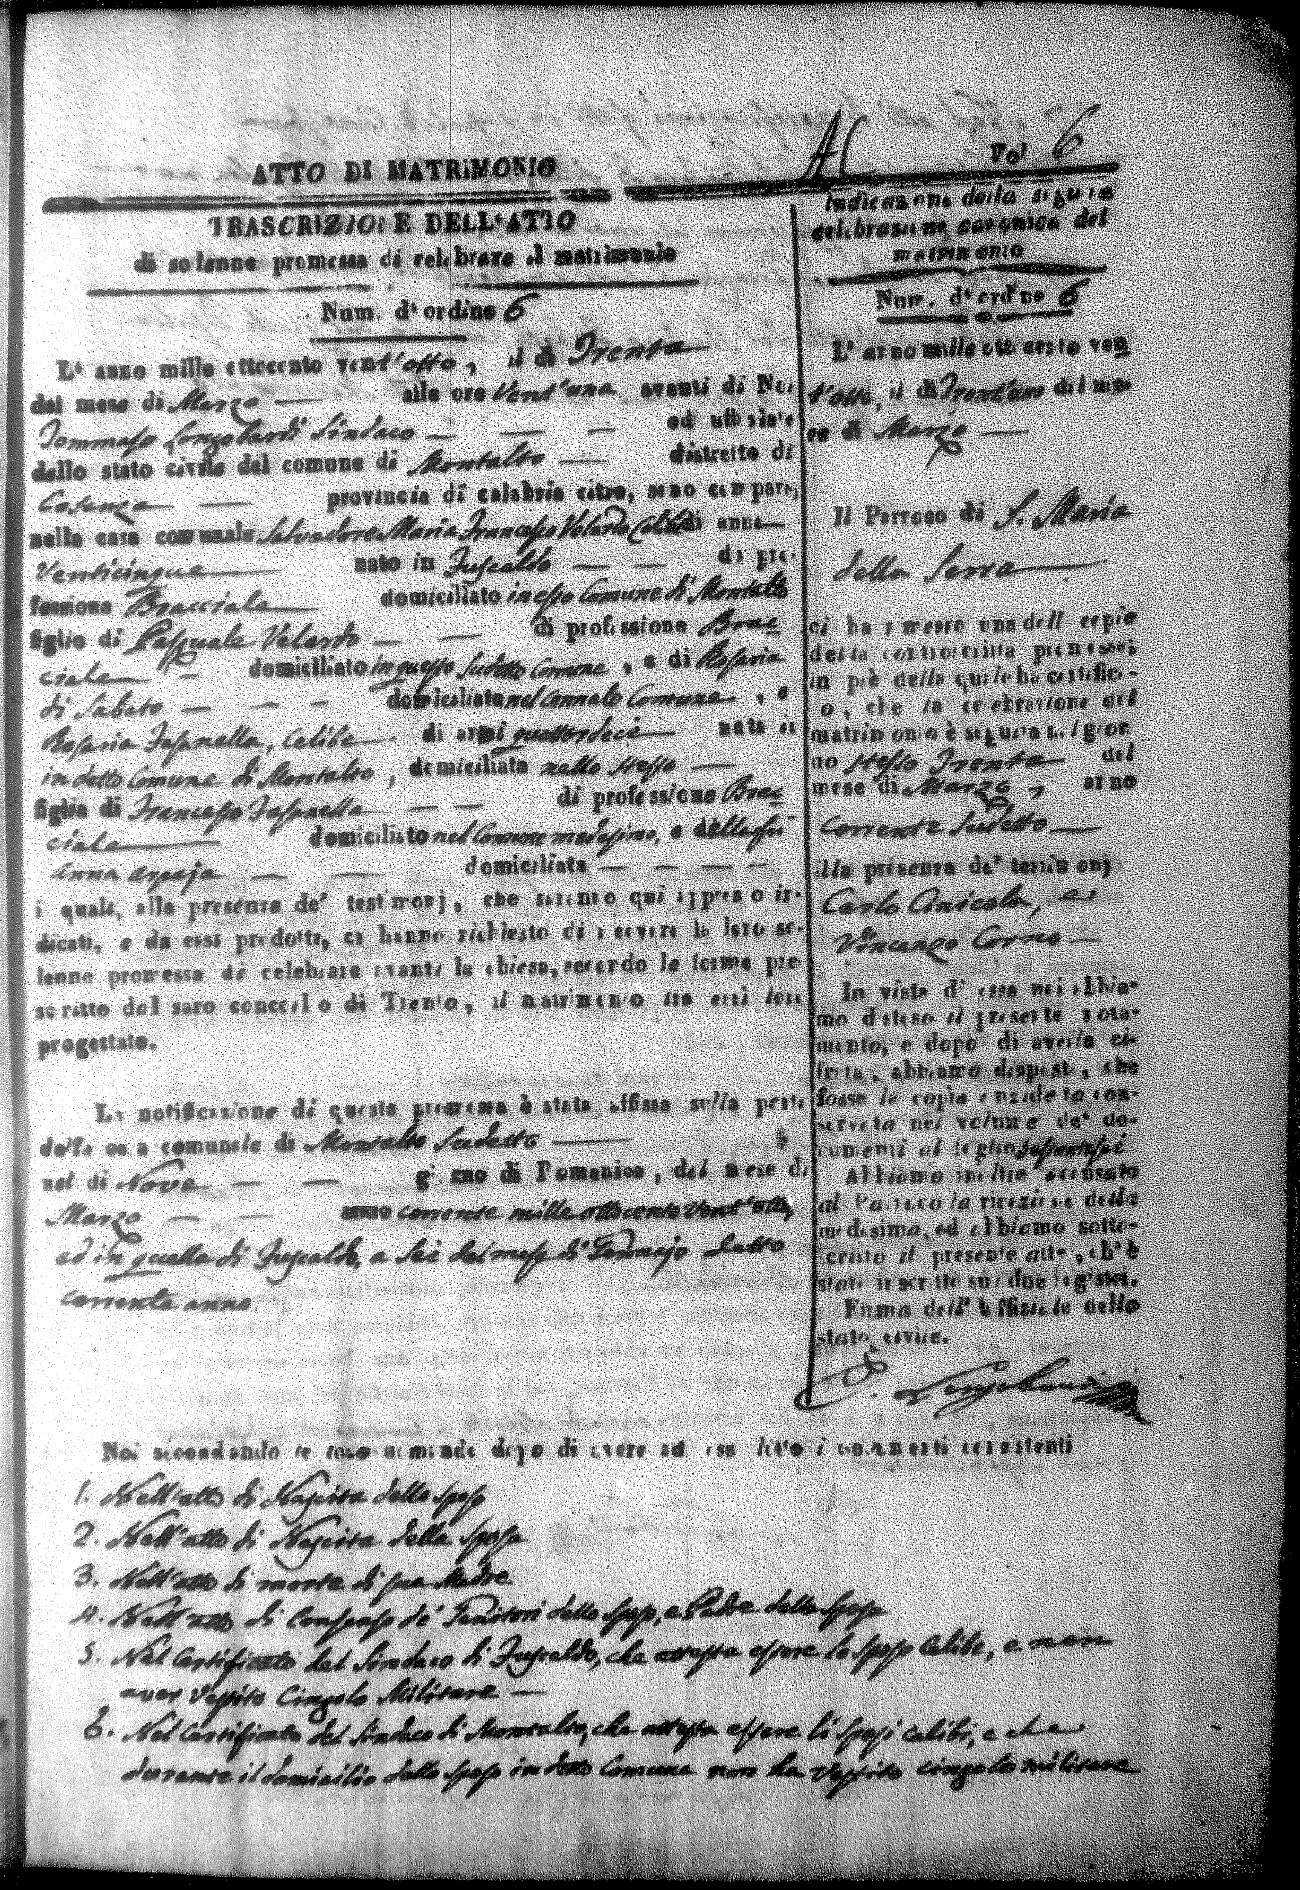 Vol 6
ATTO DI MATRIMONIO
TRASCRIZIONE DELL'ATTO
di solenne promessa di celebrare il matrimonio
Num. d'ordine 6
L'anno mille ottocento vent'otto, il di Trenta
del mese di Marzo alle ore Vent'una avanti di Noi
Tommaso Longobardi Sindaco ed uffiziale
dello stato civile del comune di Montalto distretto di
Cosenza provincia di calabria citra, sono comparsi
nella casa comunale Salvadore Maria Francesco Velardo Celibe di anni
Venticinque nato in Fuscaldo di pro-
fessione Bracciale domiciliato in esso Comune di Montalto
figlio di Pasquale Velardo di professione Brac
ciale domiciliato in questo sudetto Comune, e di Rosaria
di Sabato domiciliata nel cennato Comune, e
Rosaria celibe di anni quattordeci nata
in detto Comune di Montalto, domiciliata nello stesso
figlia di Francesco di professione Brac
ciale domiciliato nel Comune medesimo, e della fu
Anna domiciliata
i quali, alla presenza de' testimonj, che saranno qui appresso in-
dicati, e da essi prodotti, ci hanno richiesto di ricevere la loro so-
lenne promessa di celebrare avanti la chiesa, secondo le forme pre-
scritte dal sacro concilio di Trento, il matrimonio tra essi loro
progettato.
La notificazione di questa promessa è stata affissa sulla porta
della casa comunale di Montalto sudetto
nel di Nove giorno di Domenica, del mese di
Marzo anno corrente mille ottocento Vent'otto,
ed in quella di Fuscaldo, a Sei del mese di Gennajo detto
corrente anno
Noi secondando le loro domande dopo di avere ad essi letto i documenti consistenti
1. Nell'atto di Nascita dello sposo
2. Nell'atto di Nascita della sposa
3. Nell'atto di morte di sua Madre
4. Nell'atto di Consenso de' Genitori dello sposo, e Padre della sposa
5. Nel Certificato del Sindaco di Fuscaldo, che attesta essere lo sposo celibe, e non
aver vestito Cingolo Militare
6. Nel Certificato del Sindaco di Montalto, che attesta essere li sposi celibi, e che
durante il domicilio dello sposo in detto Comune non ha vestito cingolo militare
Indicazione della seguita
celebrazione canonica del
matrimonio
Num. d'ordine 6
L'anno mille ottocento ven
t'otto, il di Trent'uno del me-
se di Marzo
Il Parroco di S. Maria
della Serra
ci ha rimesso una delle copie
della controscritta promessa
in piè della quale ha certifica-
to, che la celebrazione del
matrimonio è seguita nel gior
no stesso Trenta del
mese di Marzo, anno
corrente sudetto
alla presenza de' testimonj
Carlo e
Vincenzo
In vista di essa noi abbia-
mo disteso il presente nota-
mento, e dopo di averla ci-
frata, abbiamo disposto, che
fosse la copia anzidetta con-
servata nel volume de' do-
cumenti al foglio
Abbiamo inoltre accusato
al Parroco la ricezione della
medesima, ed abbiamo sotto-
scritto il presente atto, ch'è
stato inscritto sui due registri.
Firma dell'Uffiziale dello
stato civile.